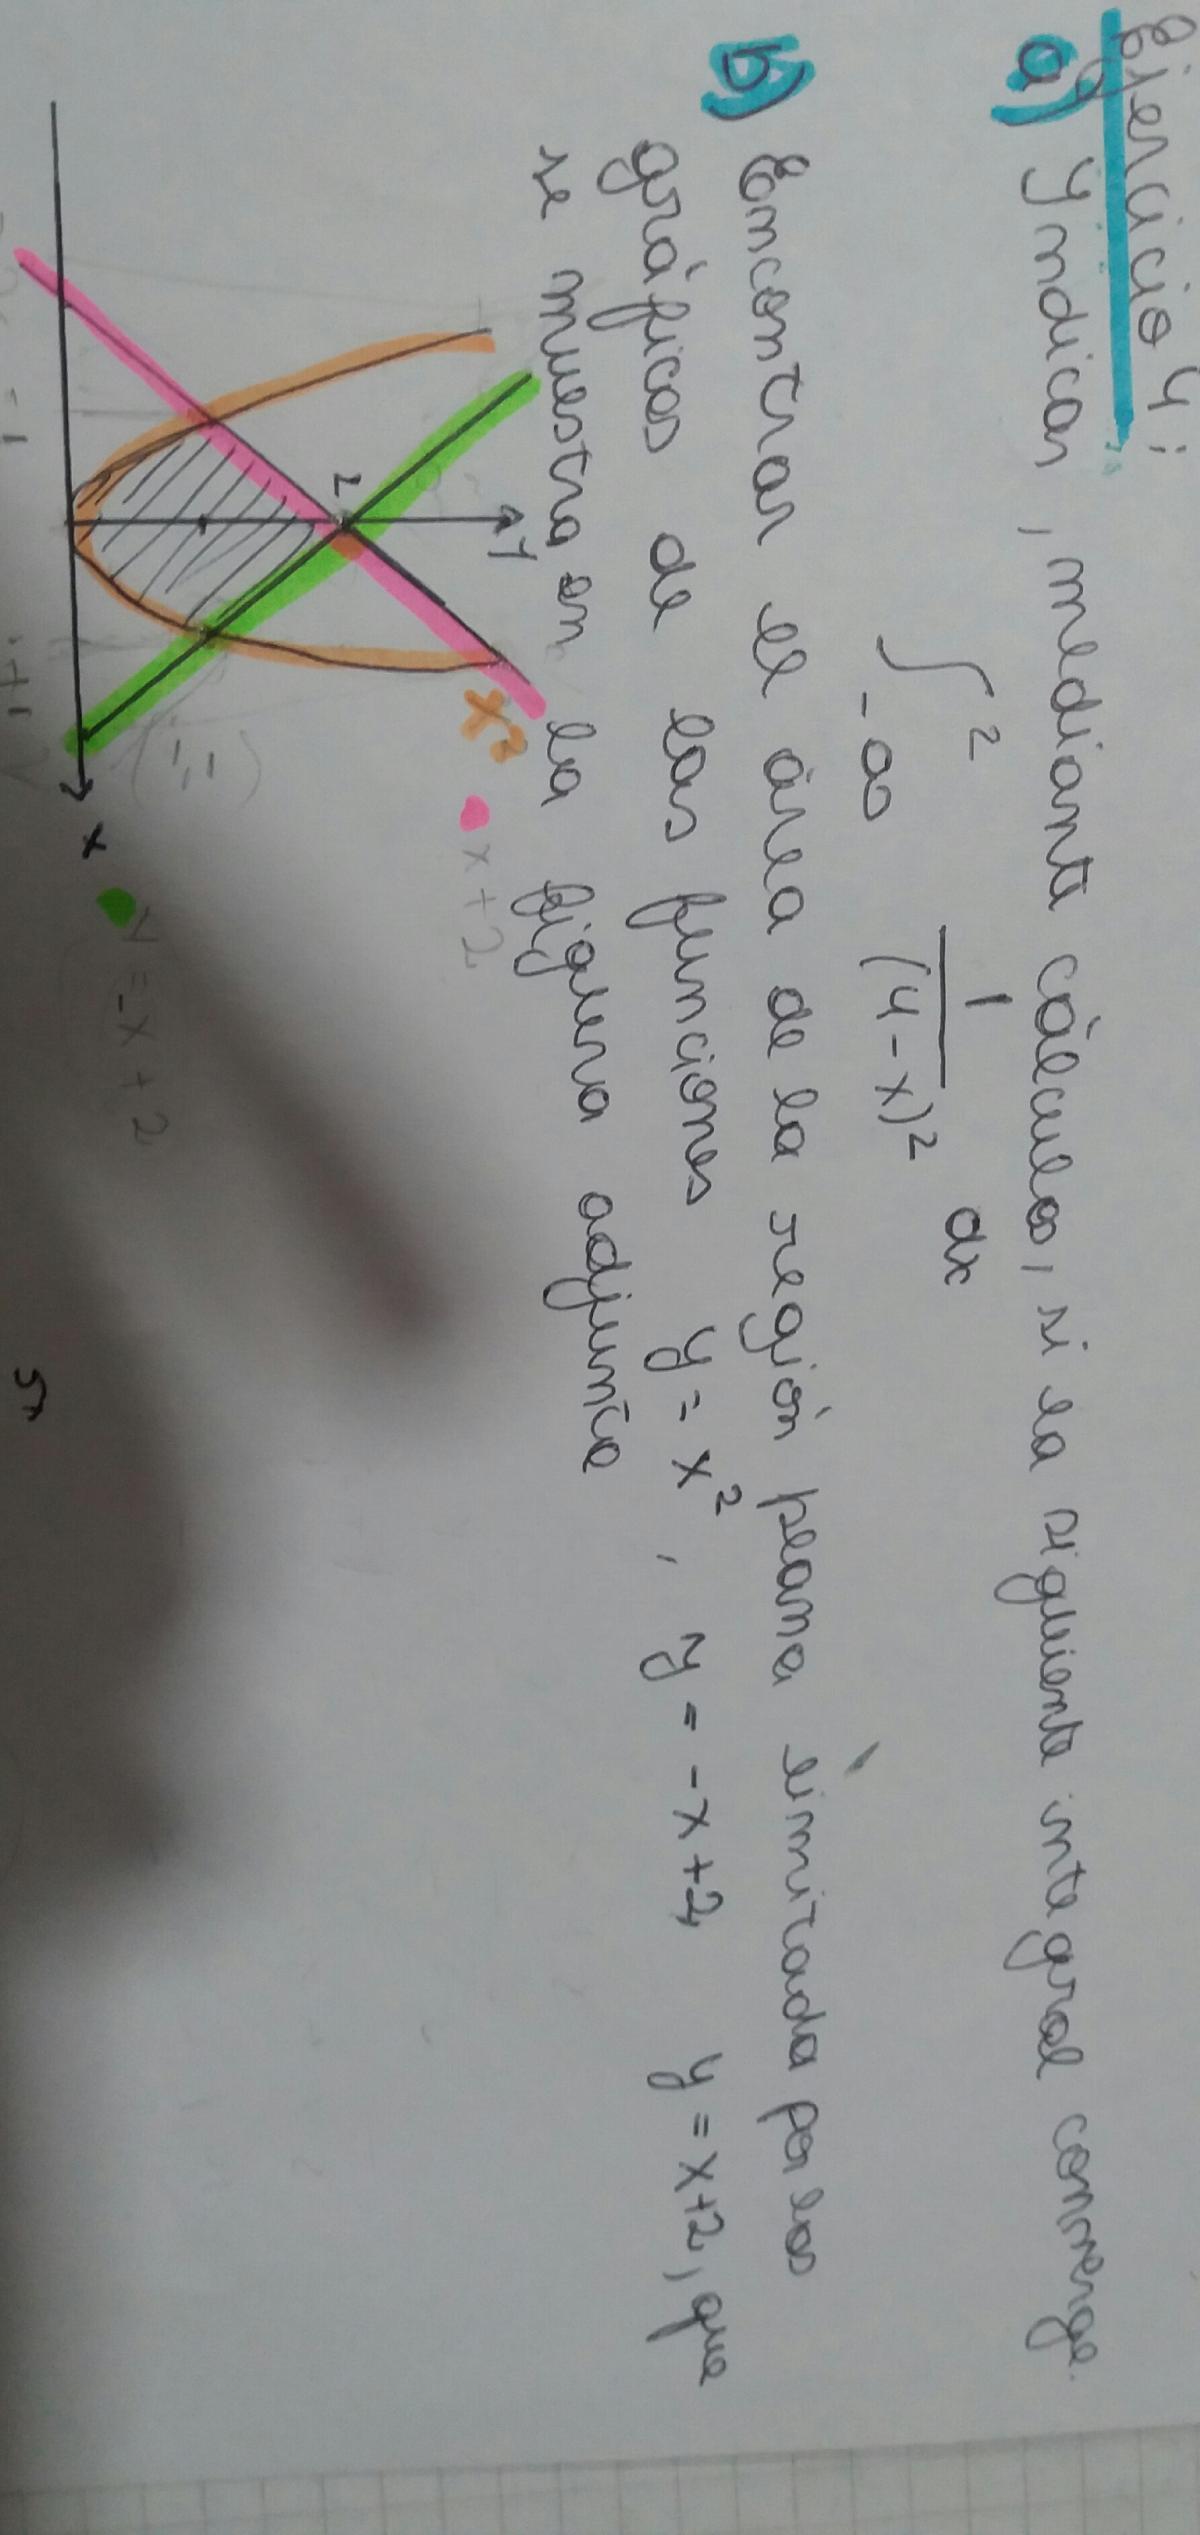 Ejercicio 4:
a) Indicar, mediante cálculos, si la siguiente integral converge.
∫ 2 -∞ 1/(4-x)² dx
b) Encontrar el área de la región plana limitada por las
gráficas de las funciones y = x², y = -x+2, y = x+2, que
se muestra en la figura adjunta
y
x²
x+2
2
x
y = -x+2